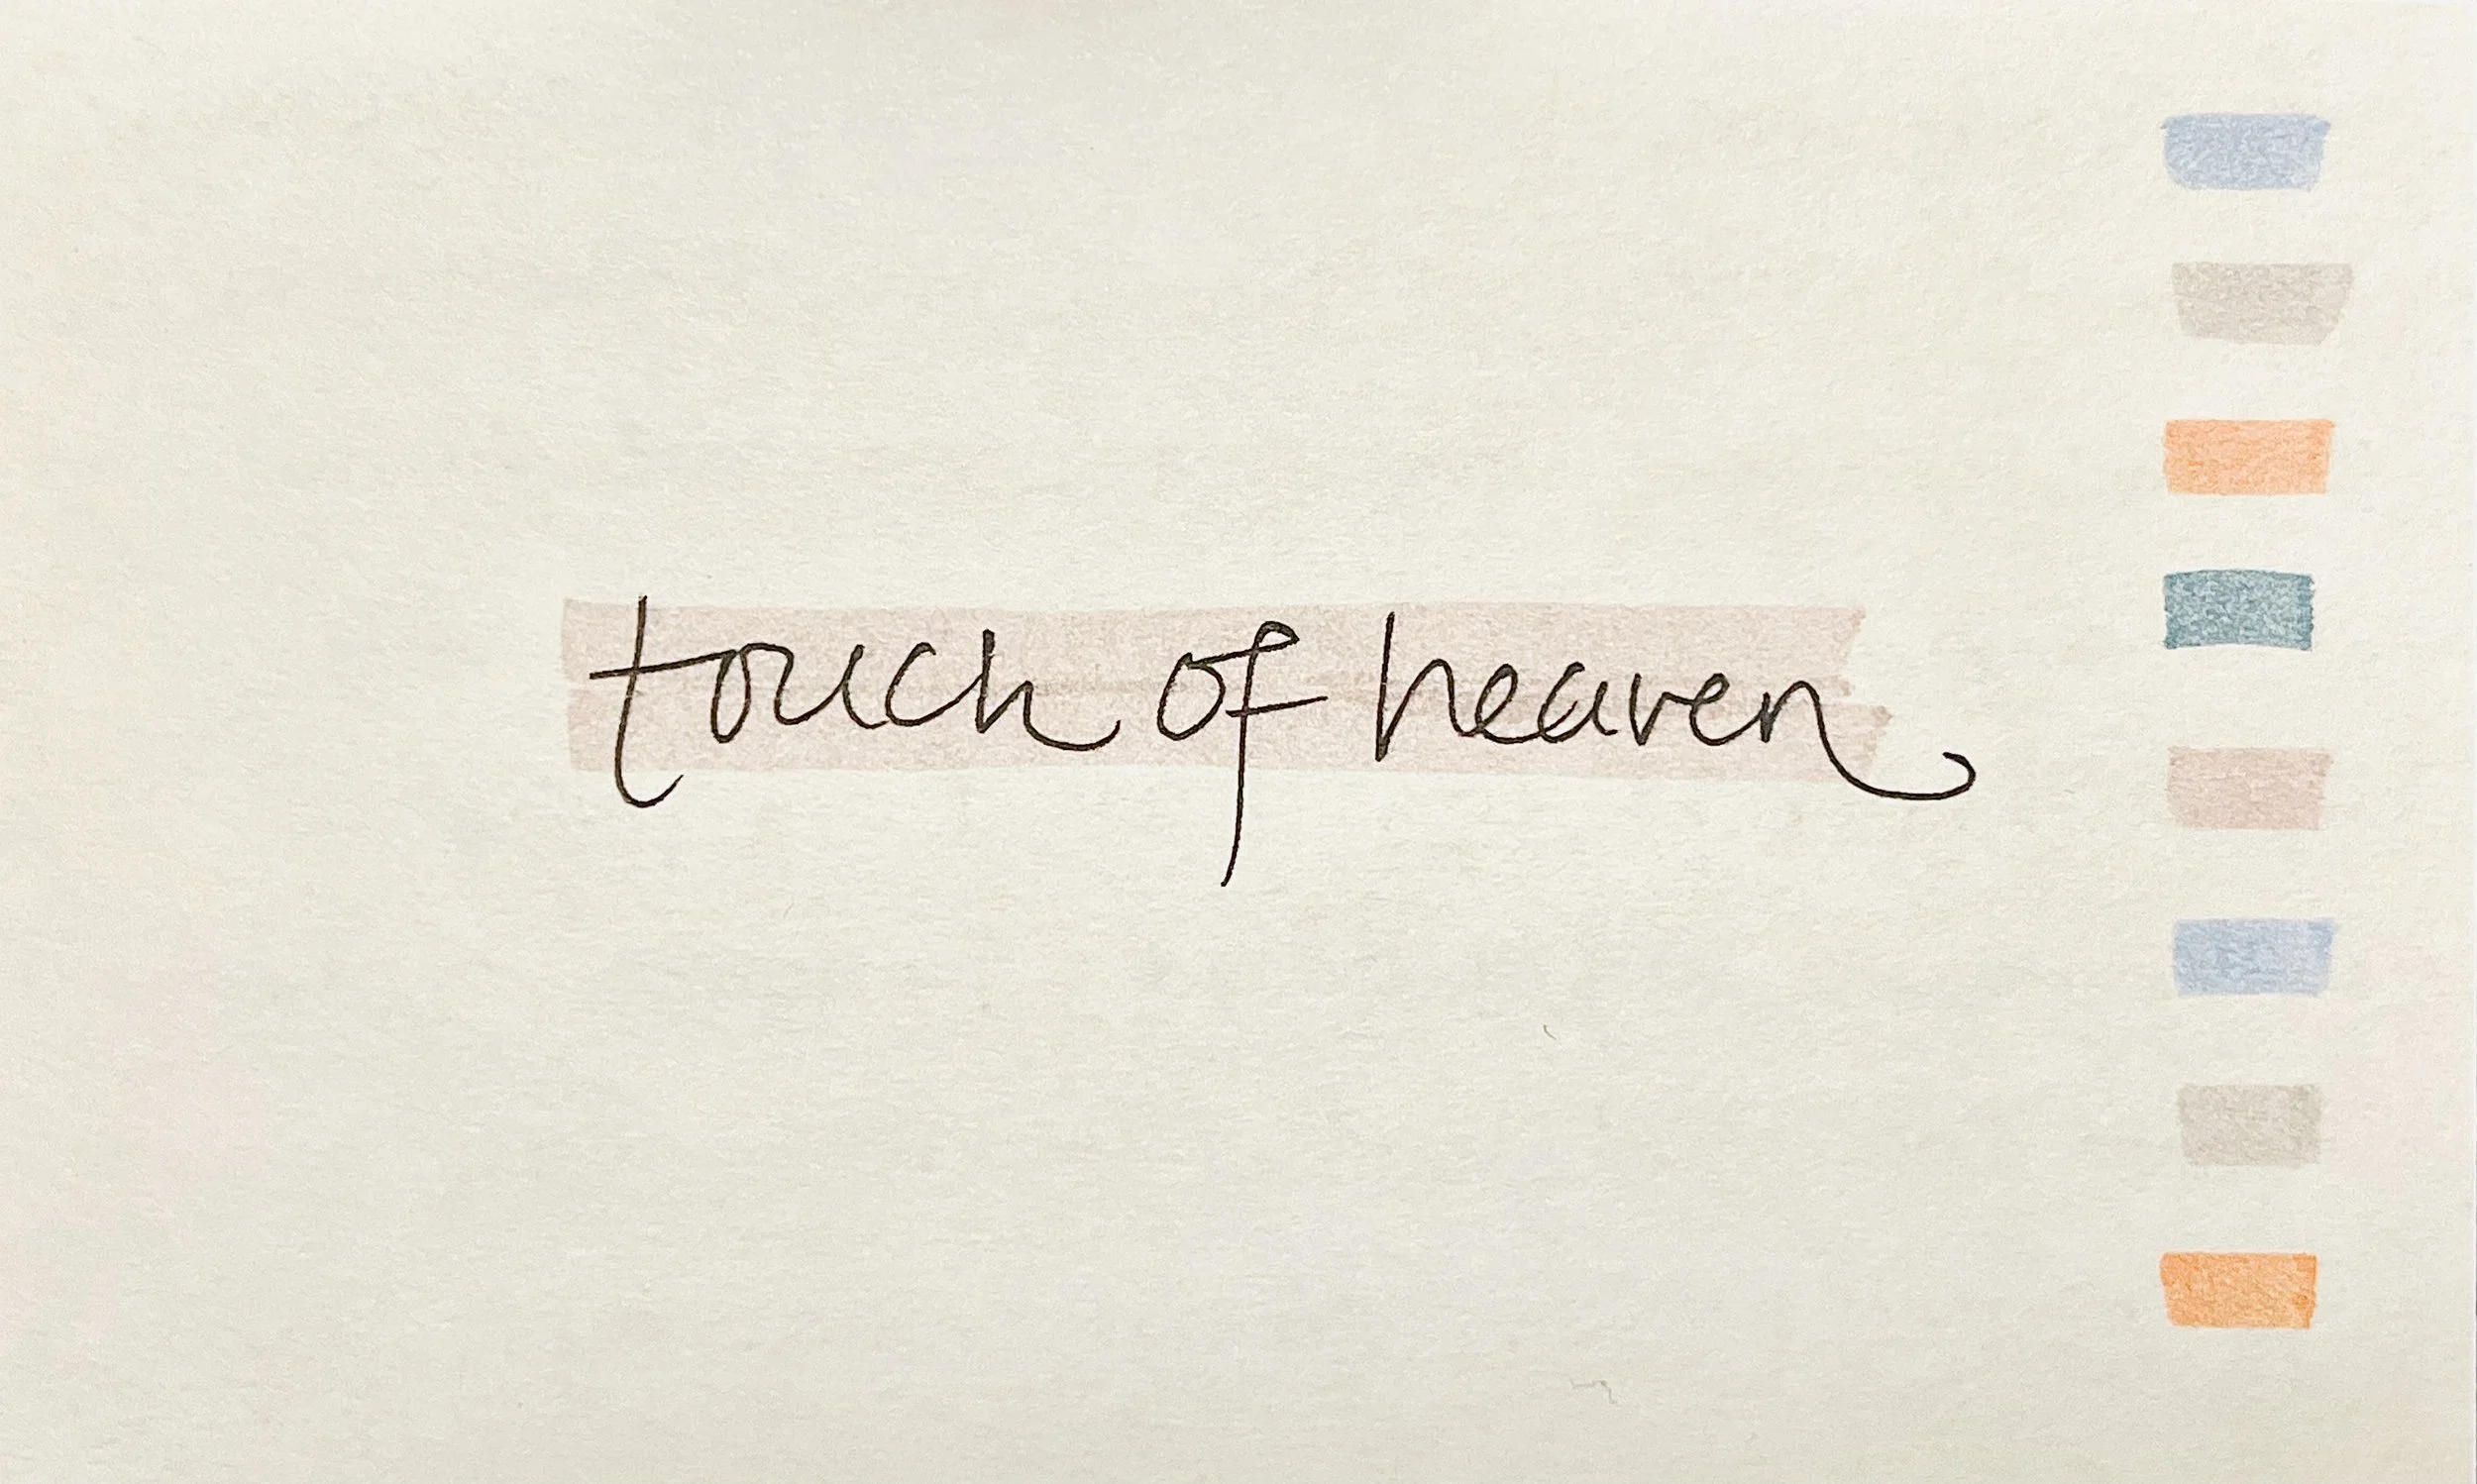 touch of heaven